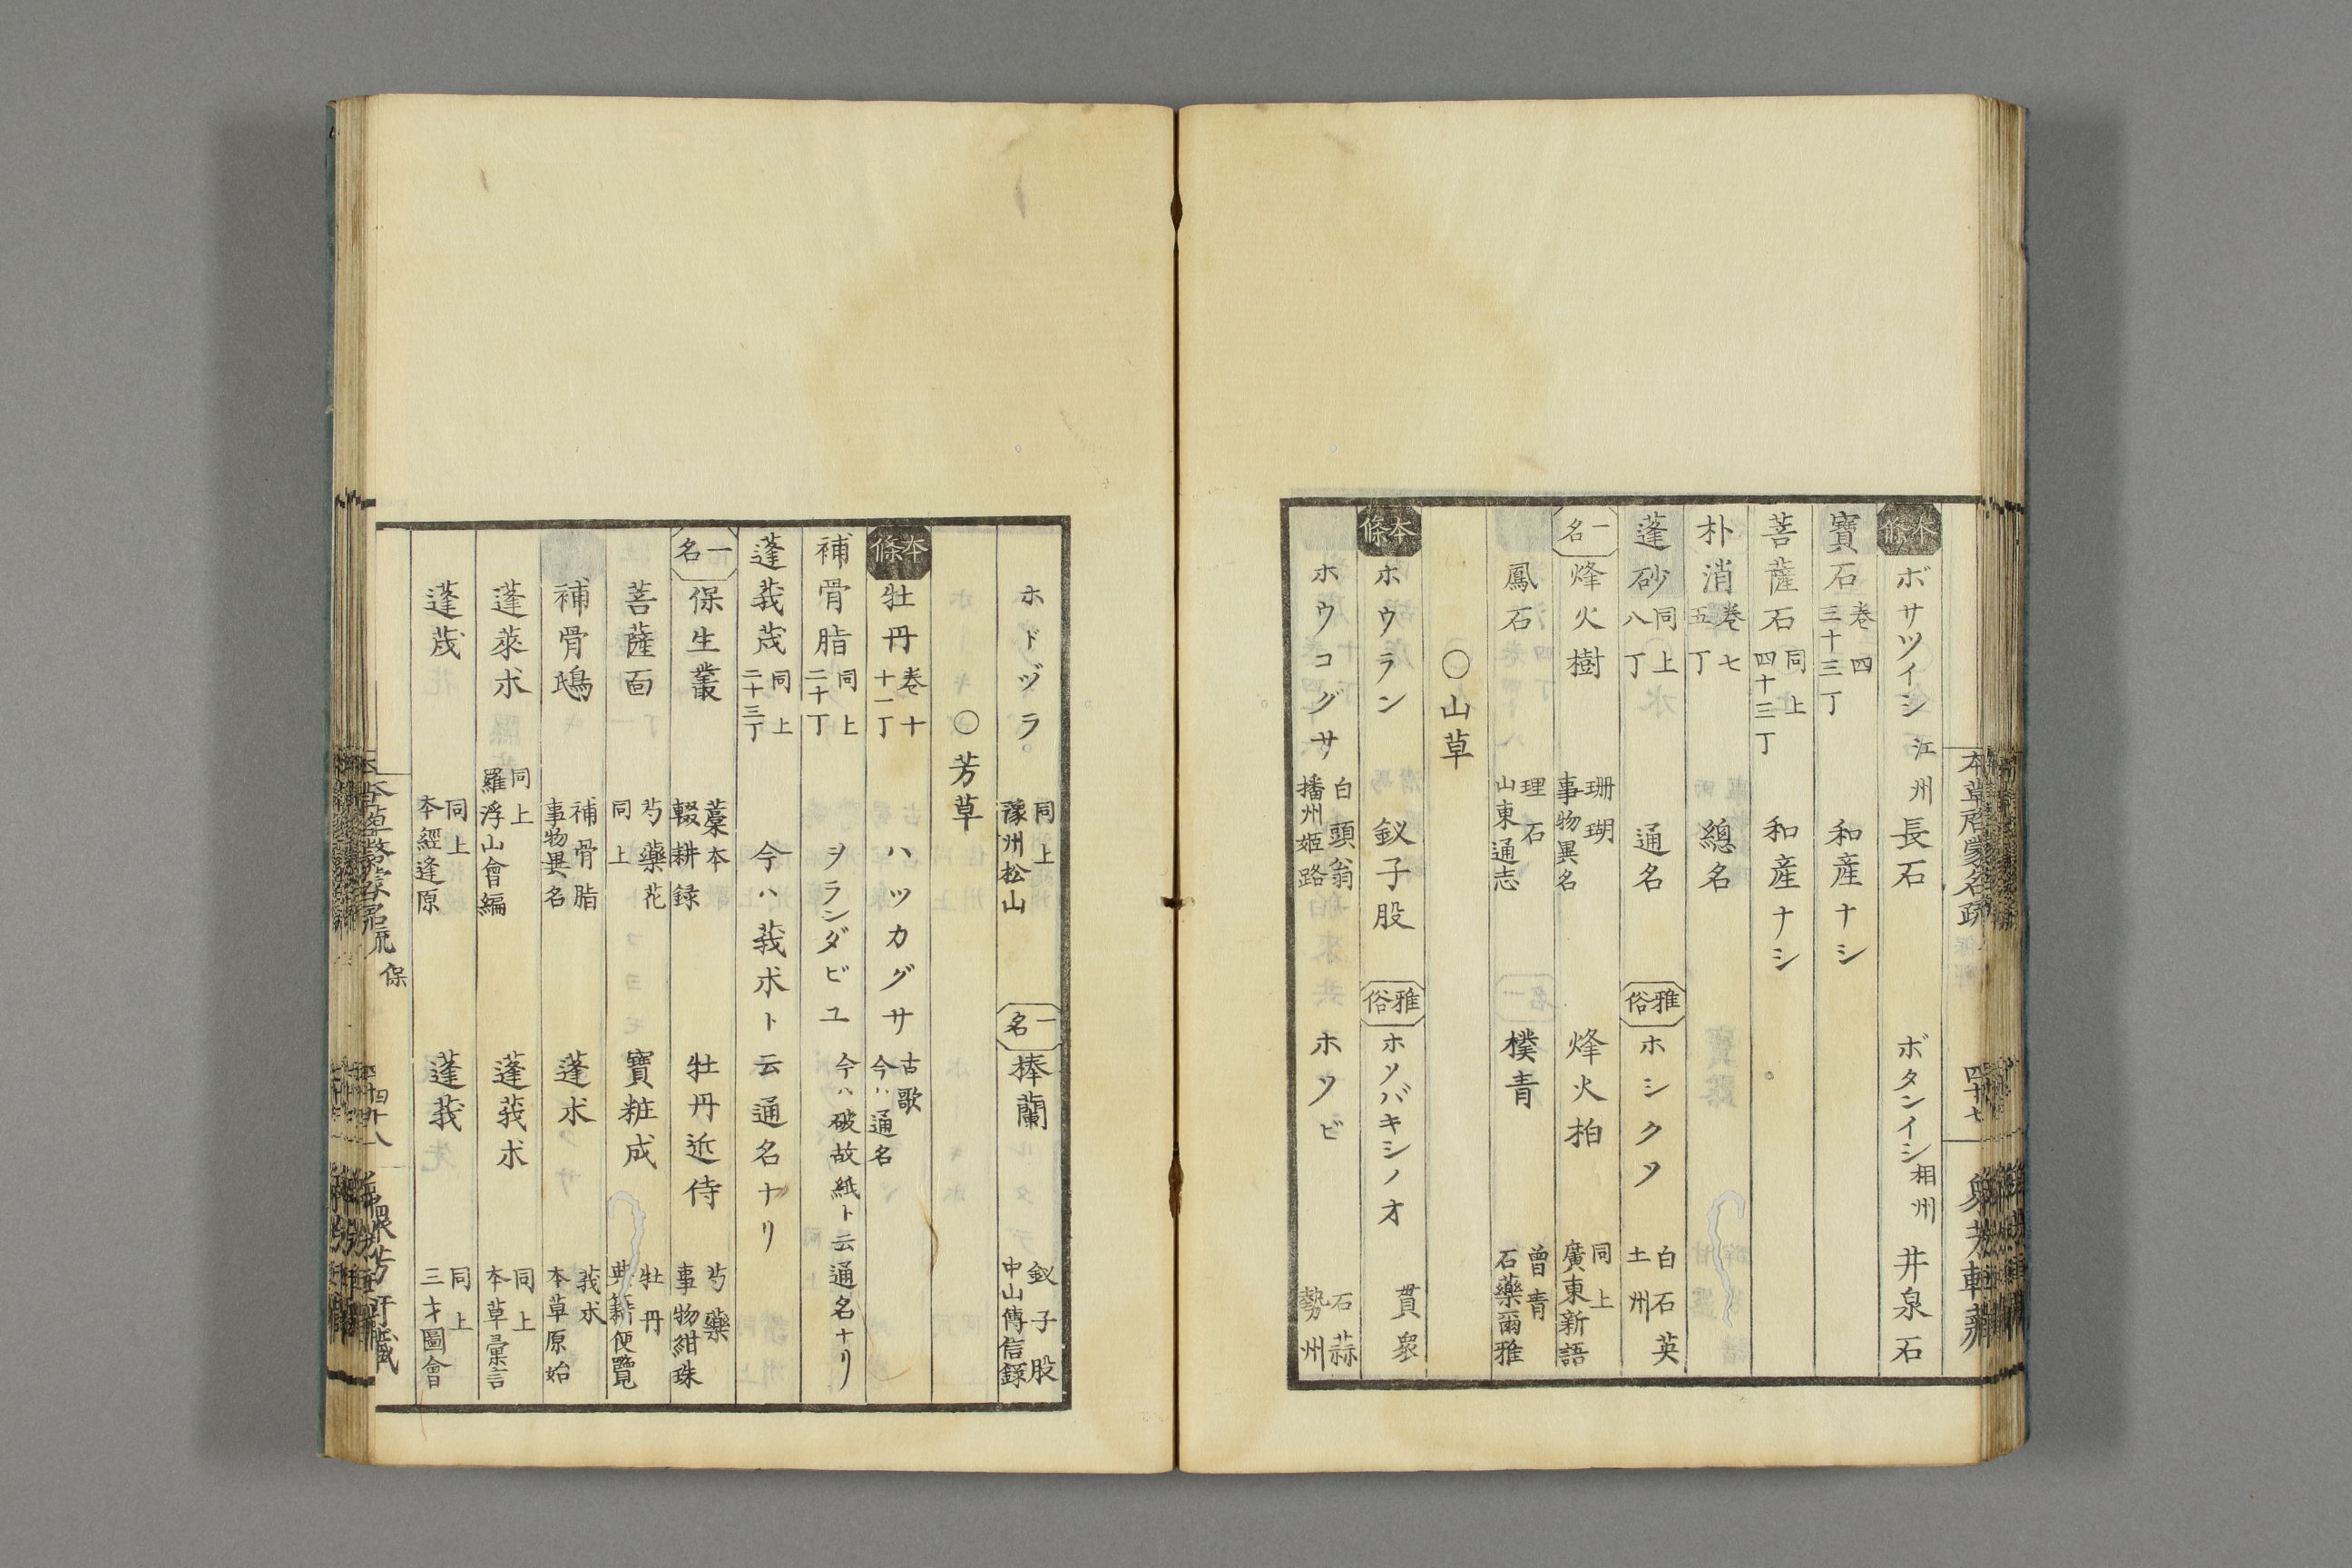 本草啓蒙名疏
四十七
衆芳軒藏
ボサツイシ 江州 長石 ボタンイシ 相州 井泉石
本條 寶石 卷四 三十三丁 和産ナシ
菩薩石 同上 四十三丁 和産ナシ
朴消 卷七 五丁 總名
蓬砂 同上 八丁 通名 雅俗 ホシクソ 白石英 土州
一名 烽火樹 珊瑚 事物異名 烽火柏 同上 廣東新語
鳳石 理石 山東通志 樸青 曾青 石藥爾雅
○山草
本條 ホウラン 釵子股 雅俗 ホソバキシノオ 貫衆
ホウコグサ 白頭翁 播州姫路 ホソビ 石蒜 勢州
ホドヅラ 同上 豫州松山 一名 棒蘭 釵子股 中山傳信錄
○芳草
本條 牡丹 卷十 十一丁 ハツカグサ 古歌 今ハ通名
補骨脂 同上 二十丁 ヲランダビユ 今ハ破故紙ト云通名ナリ
蓬莪茂 同上 二十三丁 今ハ莪朮ト云通名ナリ
一名 保生叢 藁本 輟耕録 牡丹近侍 芍藥 事物紺珠
菩薩面 芍藥花 同上 寶粧成 牡丹 典籍便覽
補骨鴟 補骨脂 事物異名 蓬朮 莪朮 本草原始
蓬萊朮 同上 羅浮山會編 蓬莪朮 同上 本草彙言
蓬茂 同上 本經逢原 蓬莪 同上 三才圖會
本草啓蒙名疏 保
四十八
衆芳軒藏